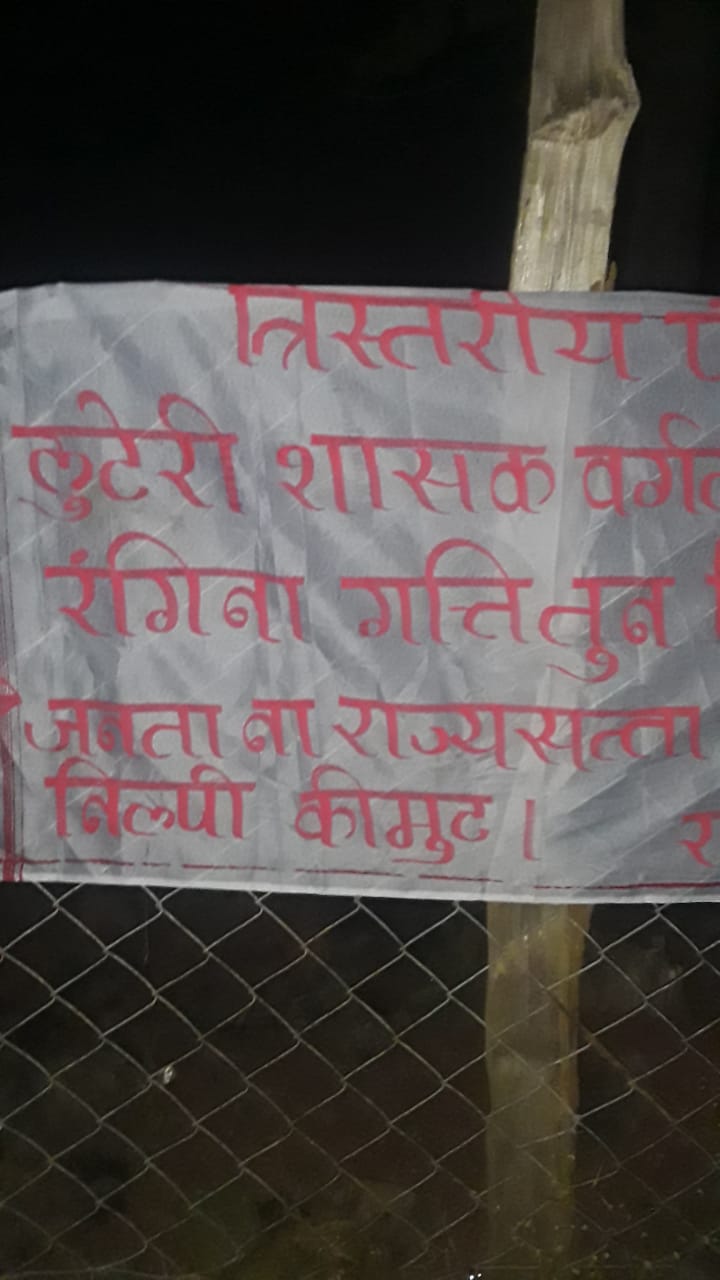 त्रिस्तरीय
लुटेरी शासक
रंगिना गत्तितुन
जनता ना राज्यसत्ता
निल्पी कीमुट।